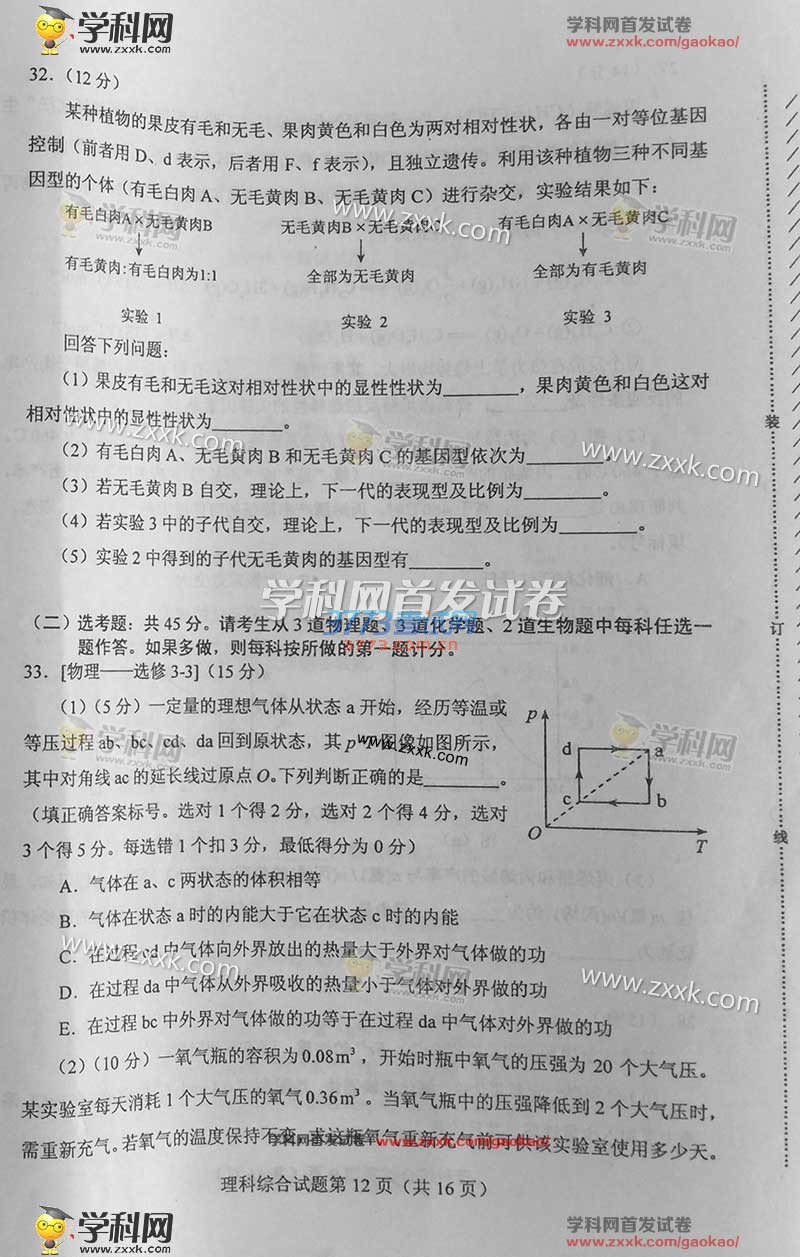 学科网
www.zxxk.com
学科网首发试卷
www.zxxk.com/gaokao/
32.（12 分）
某种植物的果皮有毛和无毛、果肉黄色和白色为两对相对性状，各由一对等位基因
控制（前者用 D、d 表示，后者用 F、f 表示），且独立遗传。利用该种植物三种不同基
因型的个体（有毛白肉 A、无毛黄肉 B、无毛黄肉 C）进行杂交，实验结果如下：
有毛白肉A×无毛黄肉B 无毛黄肉B×无毛黄肉C 有毛白肉A×无毛黄肉C
↓ ↓ ↓
有毛黄肉:有毛白肉为1:1 全部为无毛黄肉 全部为有毛黄肉
实验 1 实验 2 实验 3
回答下列问题：
（1）果皮有毛和无毛这对相对性状中的显性性状为________，果肉黄色和白色这对
相对性状中的显性性状为________。
（2）有毛白肉 A、无毛黄肉 B 和无毛黄肉 C 的基因型依次为________。
（3）若无毛黄肉 B 自交，理论上，下一代的表现型及比例为________。
（4）若实验 3 中的子代自交，理论上，下一代的表现型及比例为________。
（5）实验 2 中得到的子代无毛黄肉的基因型有________。
学科网首发试卷
（二）选考题：共 45 分。请考生从 3 道物理题、3 道化学题、2 道生物题中每科任选一
题作答。如果多做，则每科按所做的第一题计分。
33．[物理——选修 3-3]（15 分）
（1）（5 分）一定量的理想气体从状态 a 开始，经历等温或
等压过程 ab、bc、cd、da 回到原状态，其 p 图像如图所示，
其中对角线 ac 的延长线过原点 O。下列判断正确的是________。
（填正确答案标号。选对 1 个得 2 分，选对 2 个得 4 分，选对
3 个得 5 分。每选错 1 个扣 3 分，最低得分为 0 分）
p
d a
c b
O T
A．气体在 a、c 两状态的体积相等
B．气体在状态 a 时的内能大于它在状态 c 时的内能
C．在过程 cd 中气体向外界放出的热量大于外界对气体做的功
D．在过程 da 中气体从外界吸收的热量小于气体对外界做的功
E．在过程 bc 中外界对气体做的功等于在过程 da 中气体对外界做的功
（2）（10 分）一氧气瓶的容积为 0.08m³，开始时瓶中氧气的压强为 20 个大气压。
某实验室每天消耗 1 个大气压的氧气 0.36m³。当氧气瓶中的压强降低到 2 个大气压时，
需重新充气。若氧气的温度保持不变，求这瓶氧气重新充气前可供该实验室使用多少天。
学科网首发试卷 www.zxxk.com/gaokao/
理科综合试题第 12 页（共 16 页）
装
订
线
学科网
www.zxxk.com
学科网首发试卷
www.zxxk.com/gaokao/